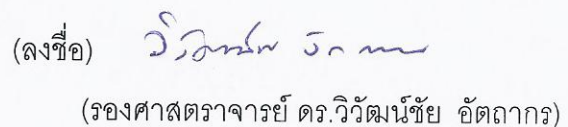 (ลงชื่อ)
(รองศาสตราจารย์ ดร.วิวัฒน์ชัย อัตถากร)